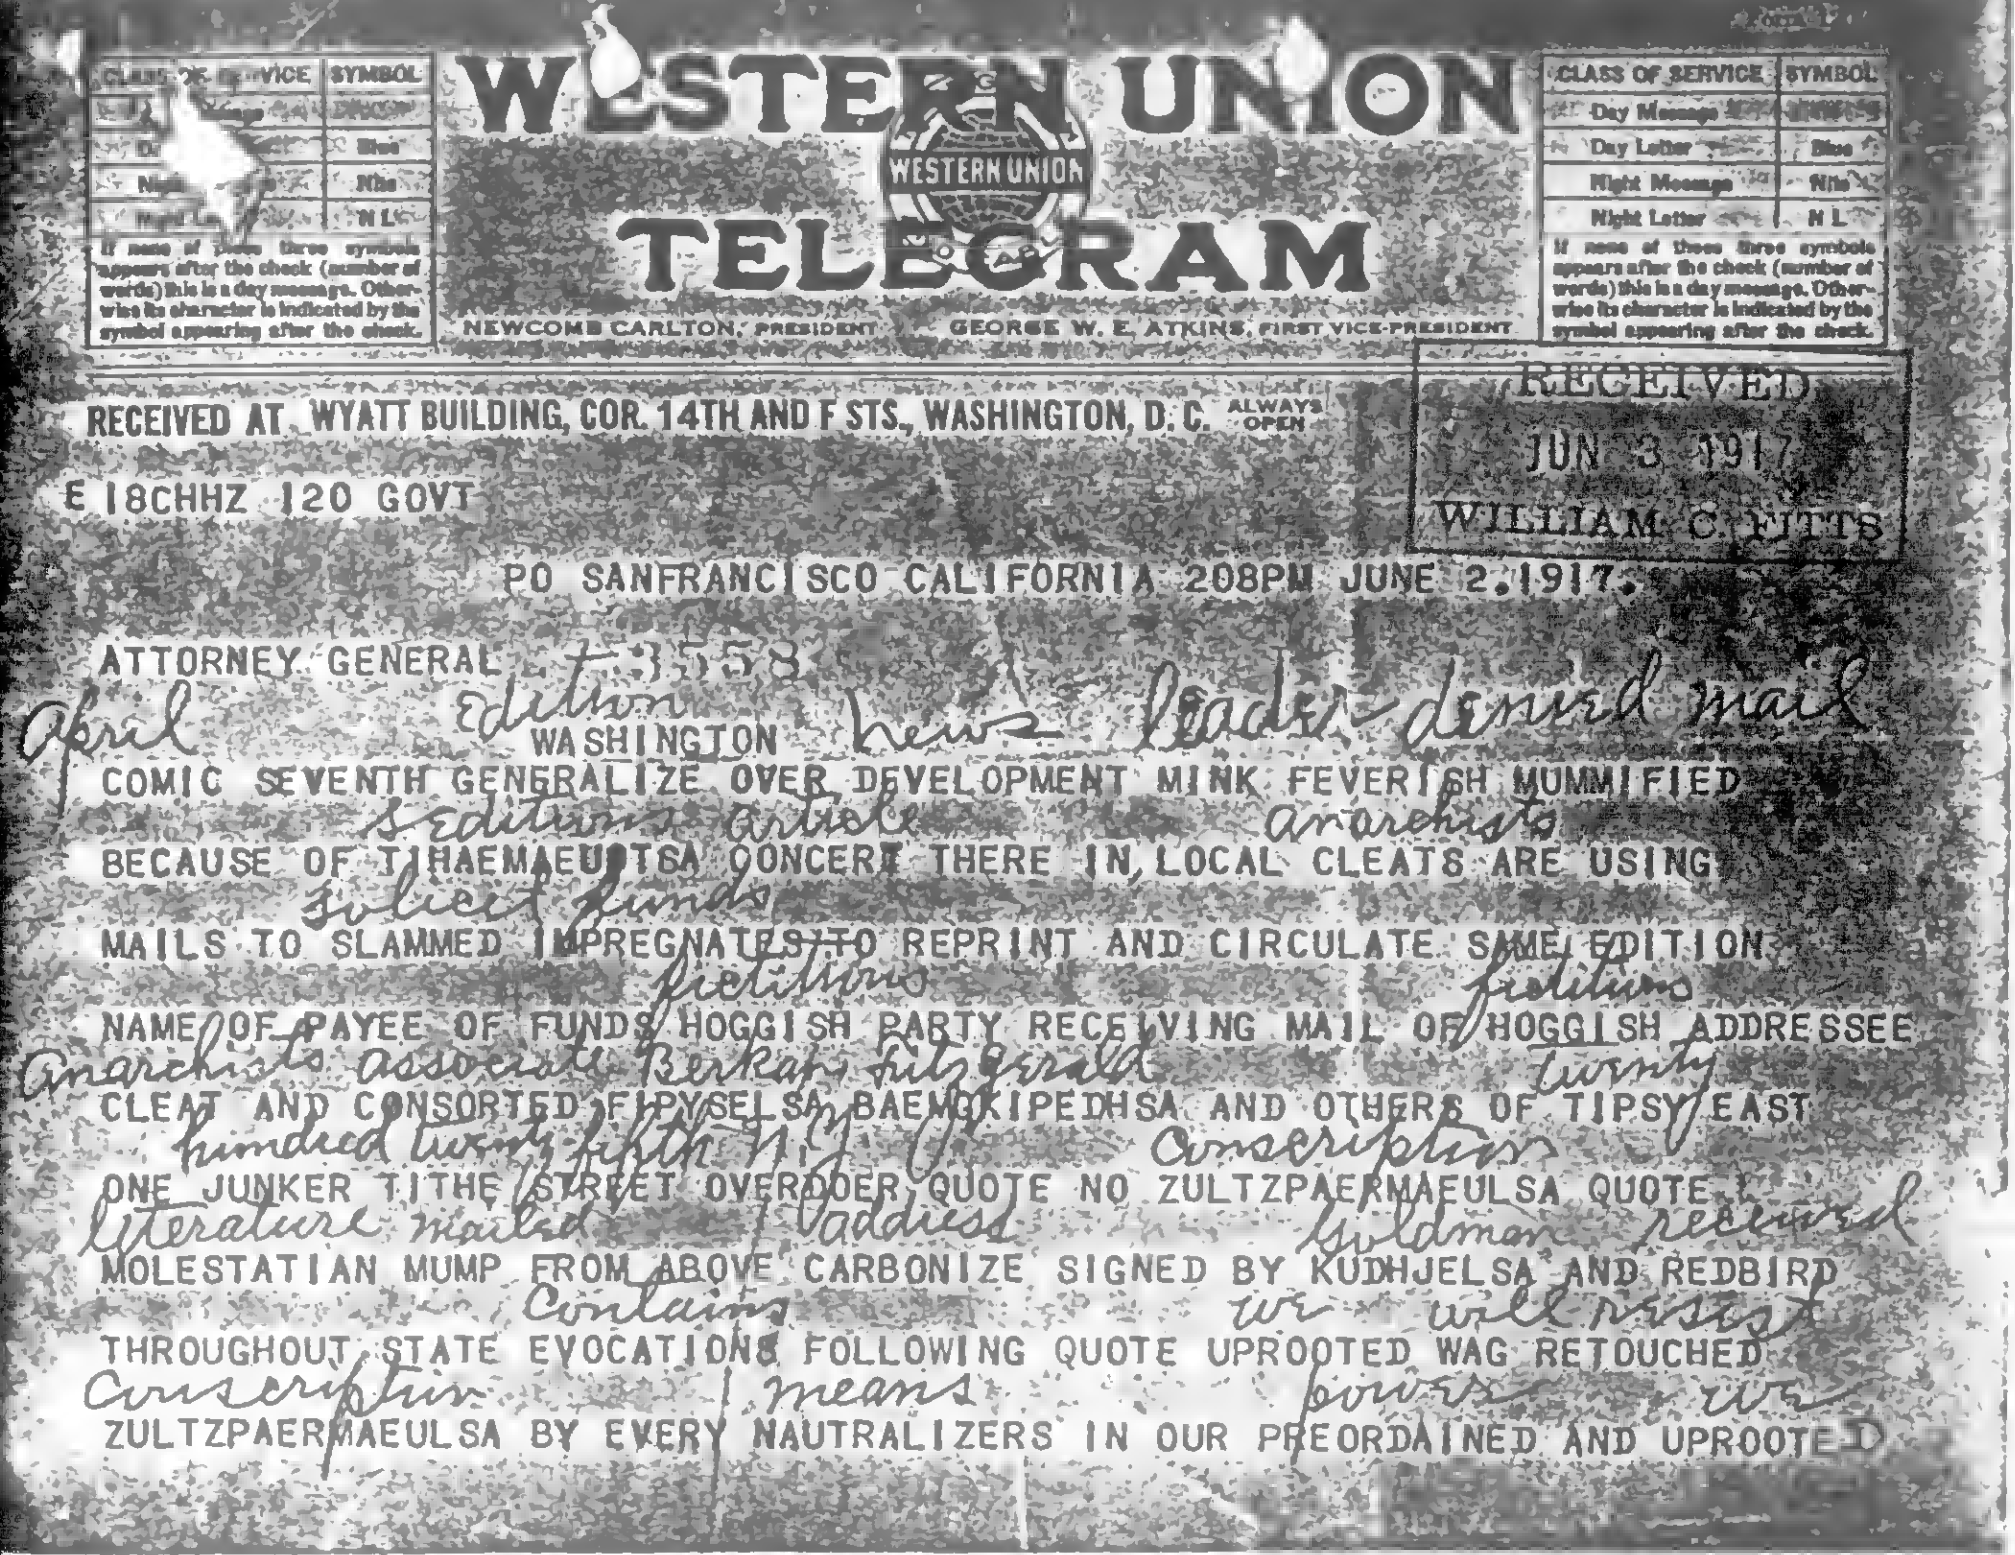 CLASS OF SERVICE SYMBOL
Blue
Nite
N L
If none of these three symbols
appears after the check (number of
words) this is a day message. Other-
wise its character is indicated by the
symbol appearing after the check.
WESTERN UNION
WESTERN UNION
TELEGRAM
NEWCOMB CARLTON, PRESIDENT GEORGE W. E. ATKINS, FIRST VICE-PRESIDENT
CLASS OF SERVICE SYMBOL
Day Message
Day Letter Blue
Night Message Nite
Night Letter N L
If none of these three symbols
appears after the check (number of
words) this is a day message. Other-
wise its character is indicated by the
symbol appearing after the check.
RECEIVED
JUN 3 1917
WILLIAM C FITTS
RECEIVED AT WYATT BUILDING, COR. 14TH AND F STS., WASHINGTON, D. C. ALWAYS OPEN
E 18CHHZ 120 GOVT
PO SANFRANCISCO CALIFORNIA 208PM JUNE 2.1917.
ATTORNEY GENERAL 3558
April edition news leader denied mail
WASHINGTON
COMIC SEVENTH GENERALIZE OVER DEVELOPMENT MINK FEVERISH MUMMIFIED
seditious article anarchists
BECAUSE OF TIHAEMAEUPTSA CONCERT THERE IN LOCAL CLEATS ARE USING
solicit funds
MAILS TO SLAMMED IMPREGNATES TO REPRINT AND CIRCULATE SAME EDITION
fictitious fictitious
NAME OF PAYEE OF FUNDS HOGGISH PARTY RECEIVING MAIL OF HOGGISH ADDRESSEE
Anarchists associate Berkan Fitzgerald twenty
CLEAT AND CONSORTED FIPYSELSA BAEMGKIPEDHSA AND OTHERS OF TIPSY EAST
hundred twenty fifth N.Y. Conscription
ONE JUNKER TITHE STREET OVERDOER QUOTE NO ZULTZPAERMAEULSA QUOTE
literature mailed address Goldman received
MOLESTATIAN MUMP FROM ABOVE CARBONIZE SIGNED BY KUDHJELSA AND REDBIRD
contains we will resist
THROUGHOUT STATE EVOCATIONS FOLLOWING QUOTE UPROOTED WAG RETOUCHED
Conscription means power we
ZULTZPAERMAEULSA BY EVERY NAUTRALIZERS IN OUR PREORDAINED AND UPROOTED